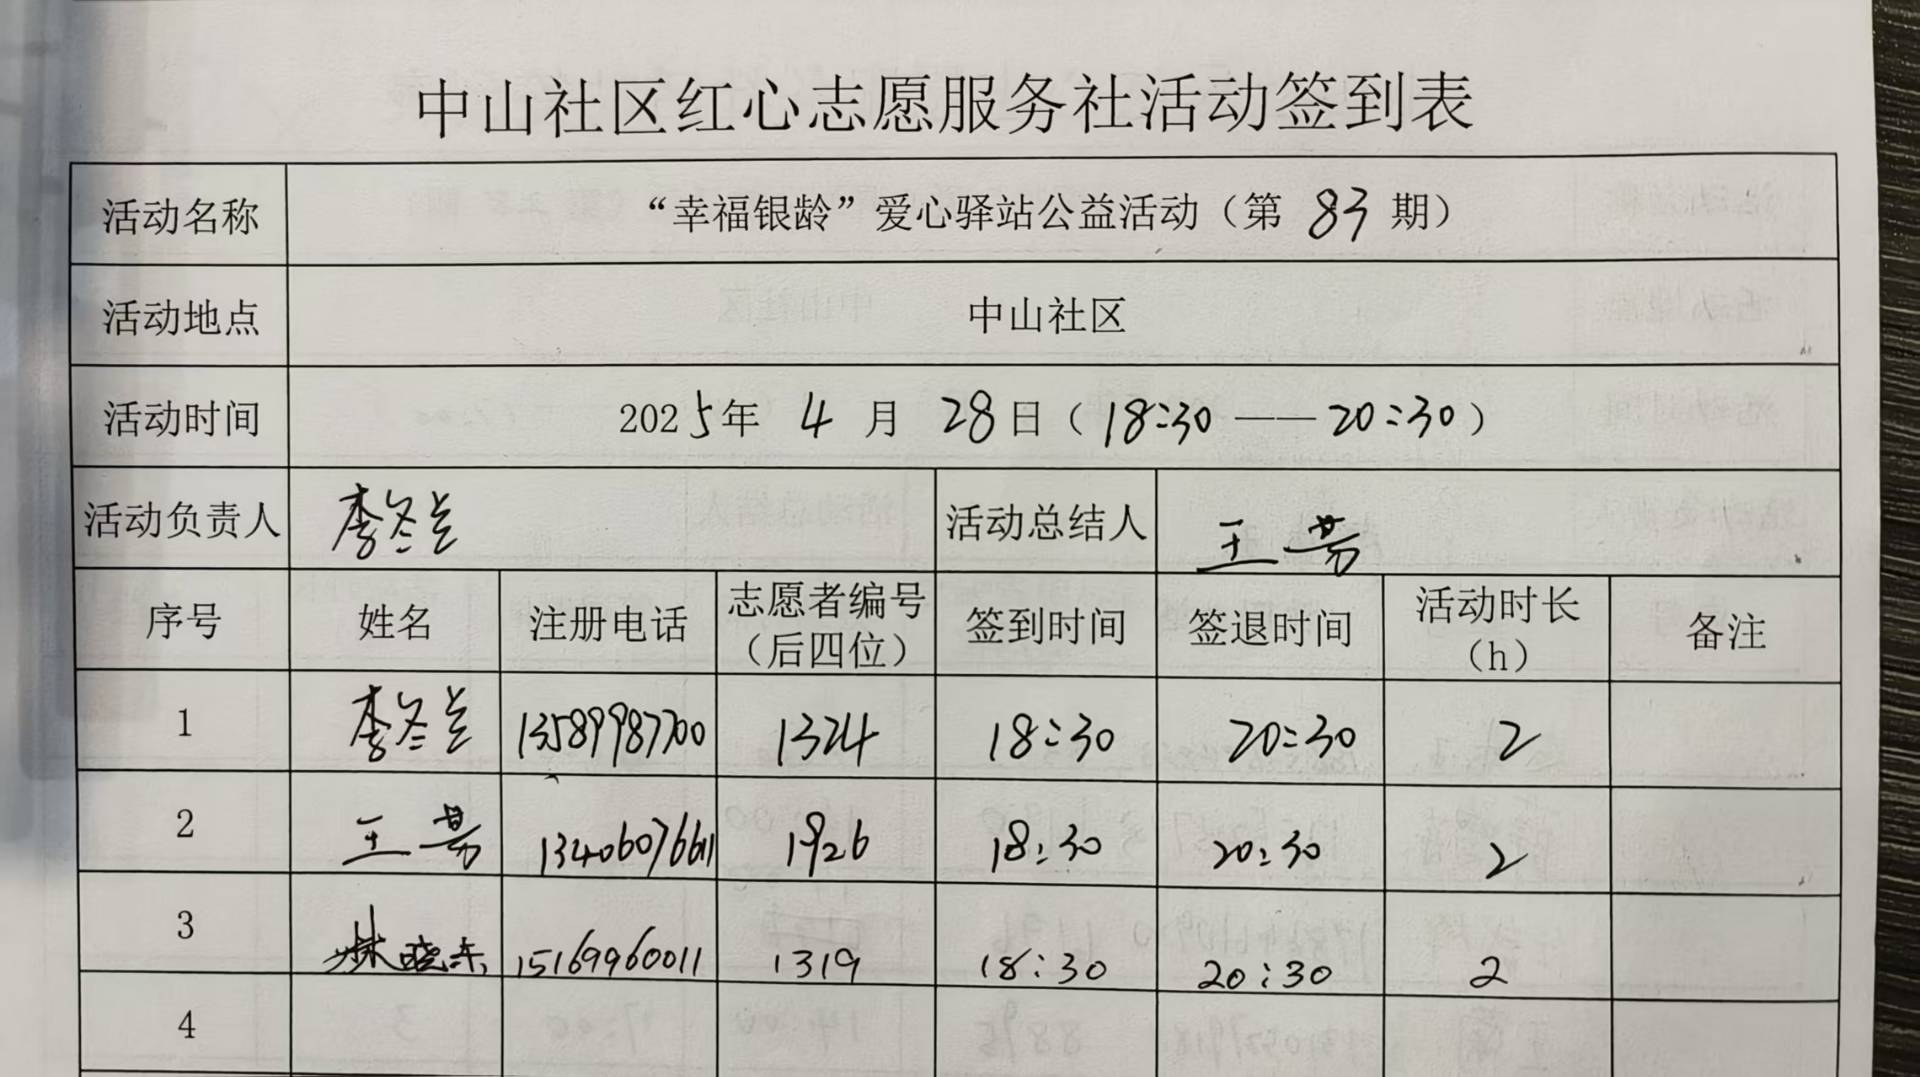 中山社区红心志愿服务社活动签到表
活动名称 “幸福银龄”爱心驿站公益活动（第 83 期）
活动地点 中山社区
活动时间 2025年 4 月 28日（18:30——20:30）
活动负责人 李冬兰 活动总结人 王芳
序号 姓名 注册电话 志愿者编号 签到时间 签退时间 活动时长 备注
（后四位） （h）
1 李冬兰 13589987700 1324 18:30 20:30 2
2 王芳 13406076611 1926 18:30 20:30 2
3 林晓东 15169960011 1319 18:30 20:30 2
4